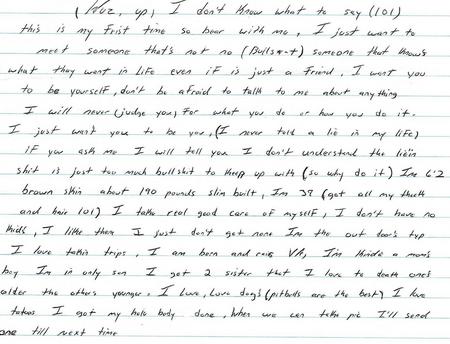 (Wuz, up) I don't know what to say (lol)
this is my frist time so bear with me, I just want to
meet someone that's not no (Bulls*-t) someone that knows
what they want in life even if is just a friend. I want you
to be yourself, don't be afraid to talk to me about anything
I will never (judge you) for what you do or how you do it.
I just want you to be you, (I never told a lie in my life)
if you ask me I will tell you I don't understand the lie'in
shit is just too much bullshit to keep up with (so why do it) I'm 6'2
brown skin about 190 pounds slim built, I'm 37 (got all my theeth
and hair lol) I take real good care of myself, I don't have no
kids, I like them I just don't got none I'm the out door's typ
I love takin trips, I am born and rais VA, I'm kinda a mom's
boy I'm in only son I got 2 sister that I love to death one's
older the other's younger. I love, love dog's (pitbulls are the best) I love
tatoos I got my hole body done, when we can take pic I'll send
one till next time